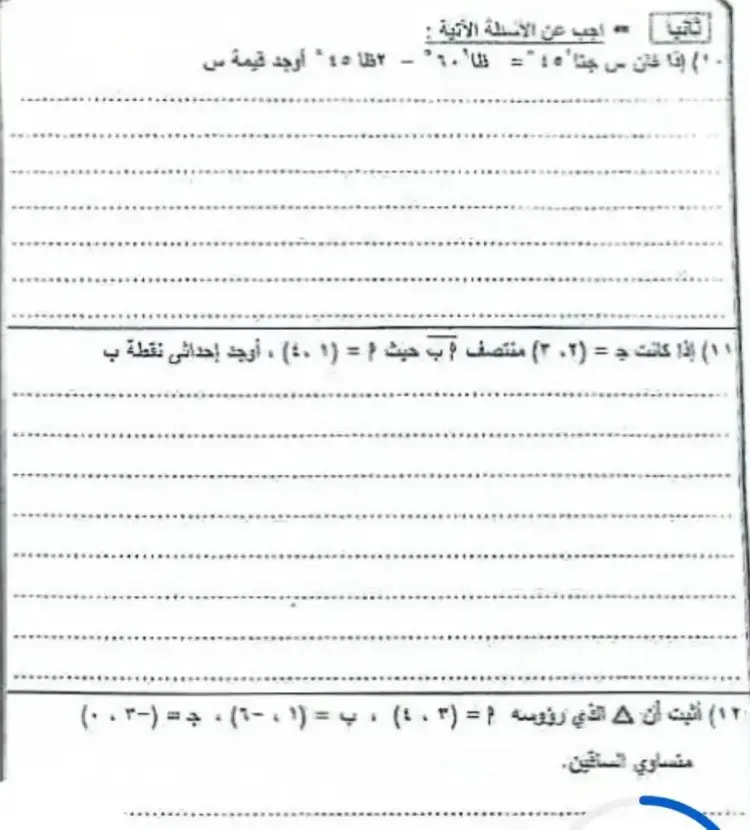 ثانيا = اجب عن الأسئلة الآتية :
١٠) إذا كان س جتا²٤٥° = ظا²٦٠° − ٢ظا٤٥° أوجد قيمة س
١١) إذا كانت جـ = (٢، ٣) منتصف أب حيث أ = (١، ٤) ، أوجد إحداثى نقطة ب
١٢) أثبت أن △ الذي رؤوسه أ = (٣، ٤) ، ب = (١، −٦) ، جـ = (−٣، ٠)
متساوي الساقين.